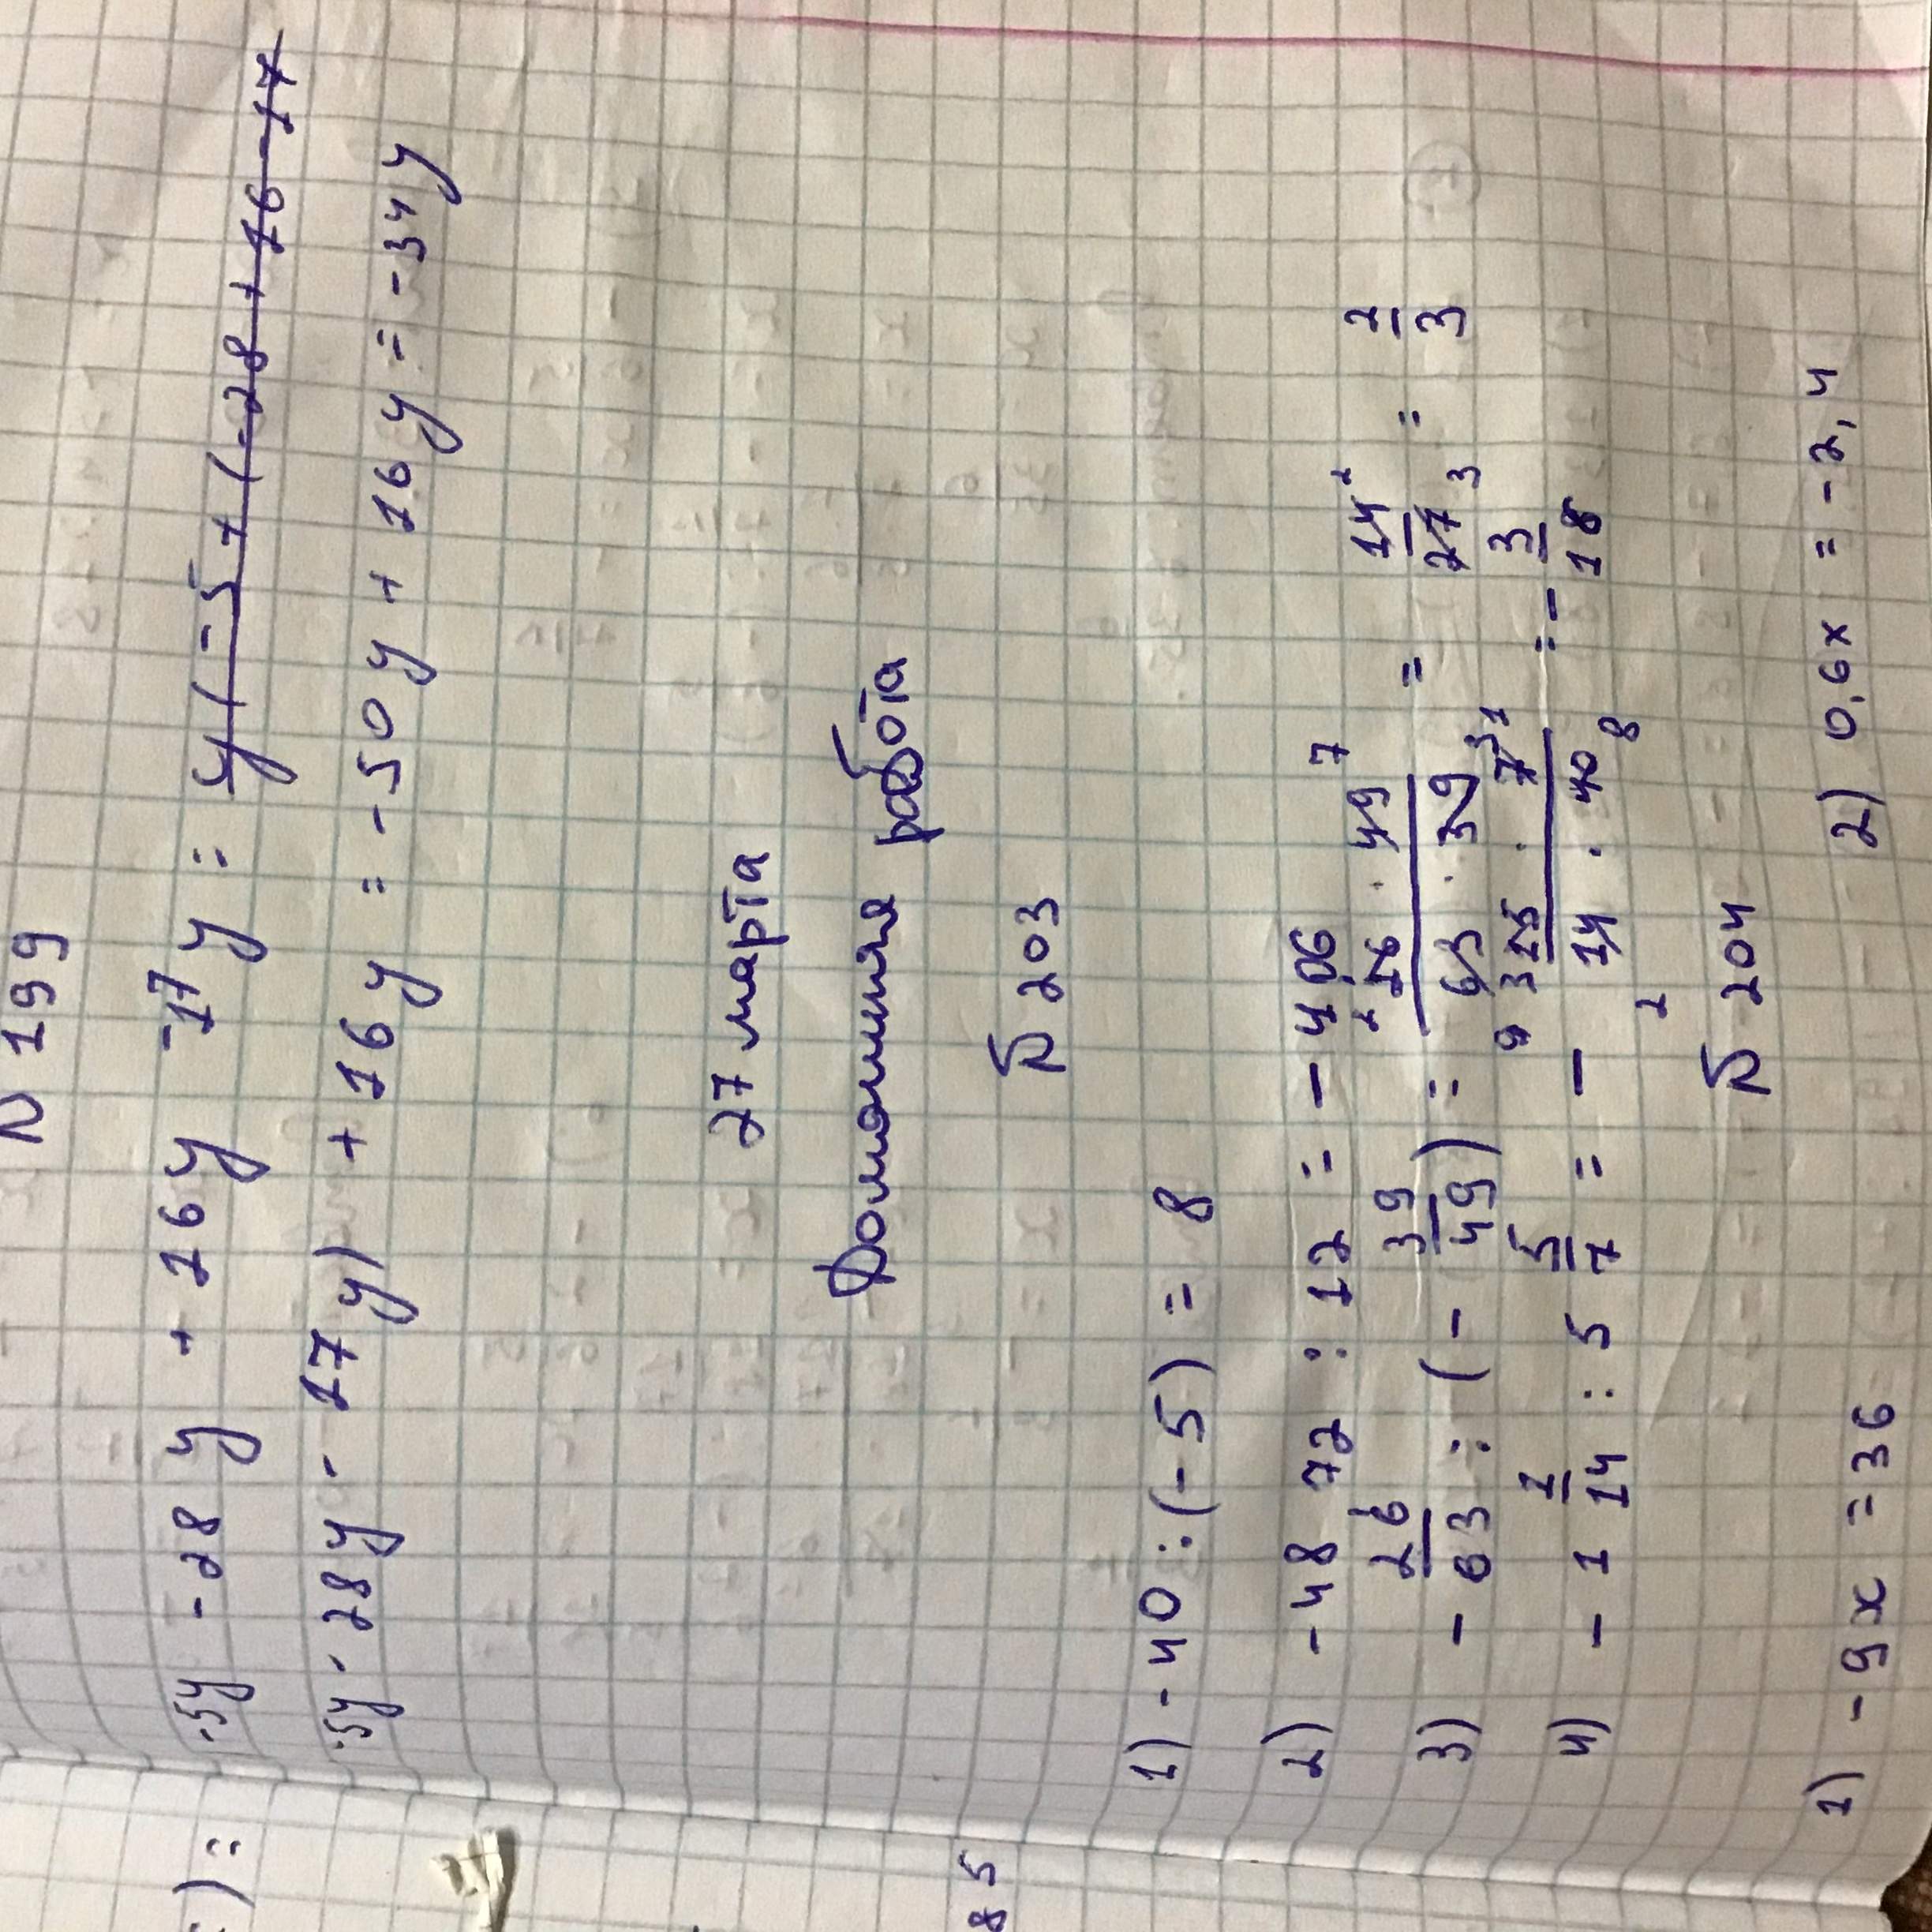 N 199
-5y -28y + 16y -17y = y(-5+(-28+16-17
-5y-28y-17y) + 16y = -50y + 16y = -34y
27 марта
Домашняя работа
N 203
1) -40 : (-5) = 8
2) -48 72 : 12 = - 406
3) - 26/63 : (- 39/49) = 26 · 49 / 63 · 39 = 14/27 = 2/3
4) - 1 1/14 : 5 5/7 = - 15 · 7 / 14 · 40 = - 3/18
N 204
1) -9x = 36 2) 0,6x = -2,4
) =
8 5